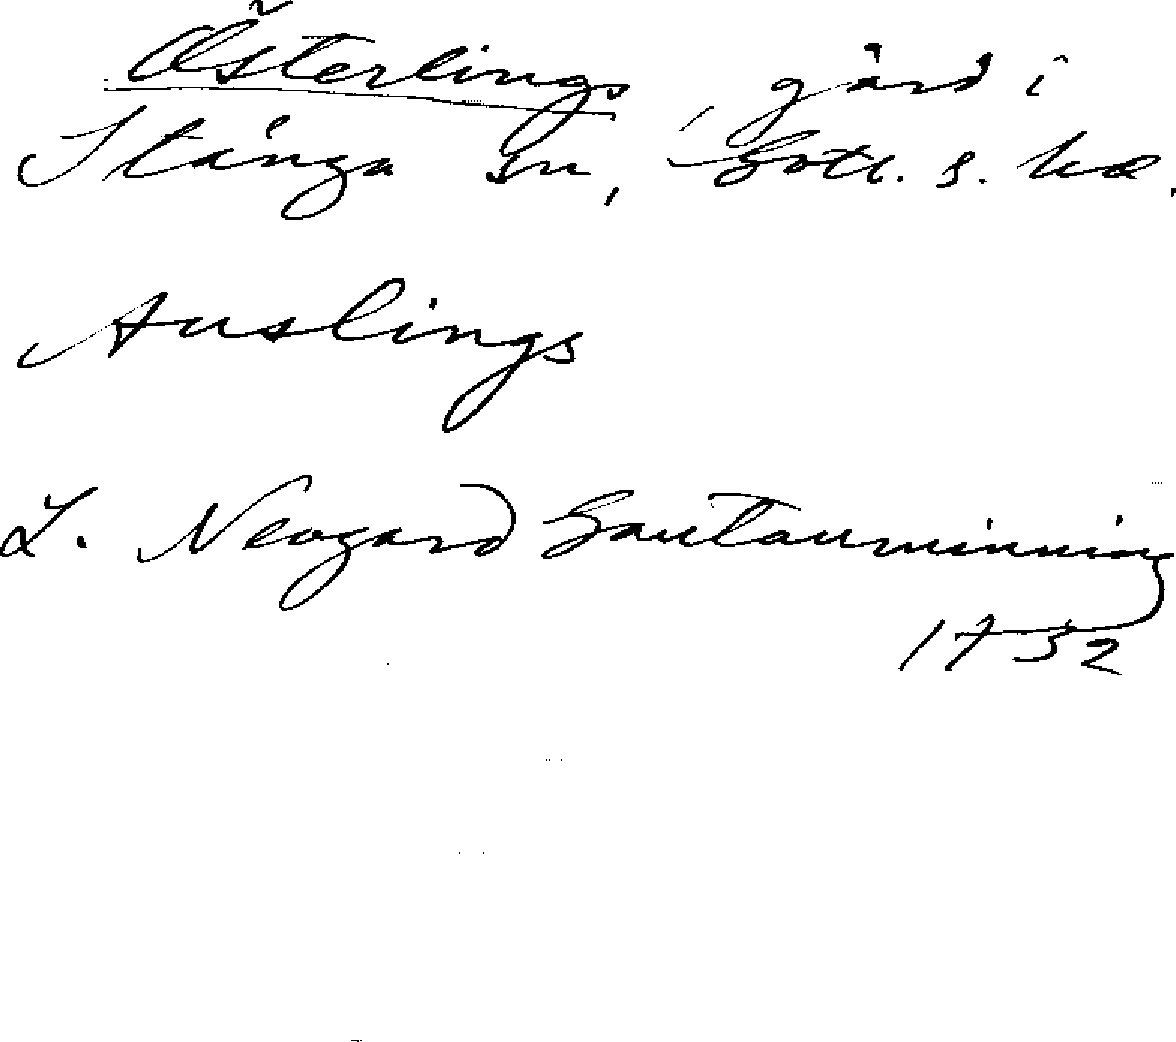 Österlings, gård i
Stånga sn, Gotl. s. hd.
Auslings
L. Neogard Gautauminning
1732